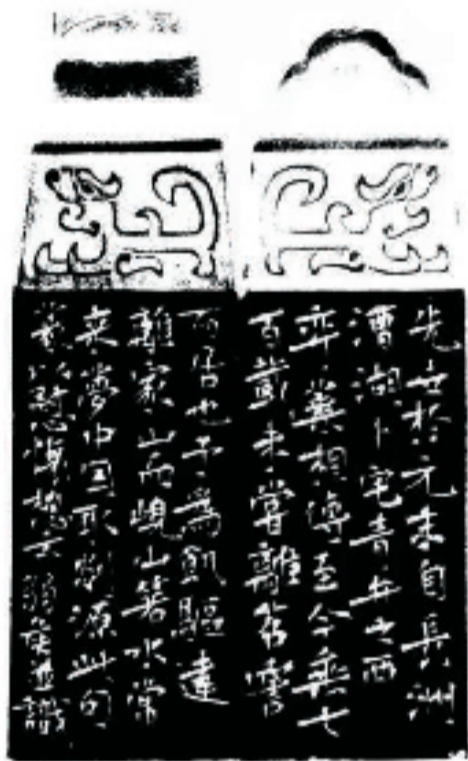 先世於元末自長洲
漕湖卜宅青弁之西
弈葉相傳至今垂七
百載未嘗離
而居也予為飢驅遠
離家山而峴山箬水常
來夢中因取剡源此句
篆以慰懷想云並識